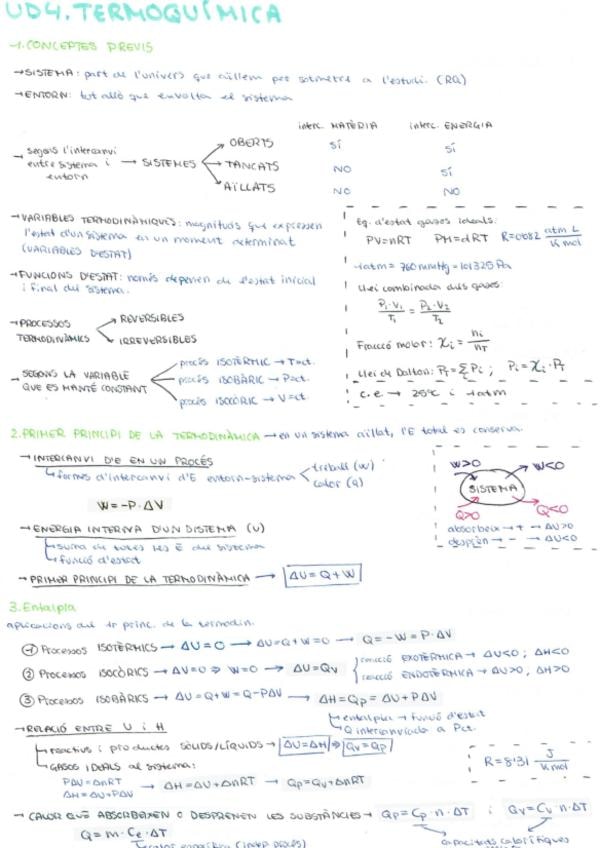 UD4. TERMOQUÍMICA
→1. CONCEPTES PREVIS
→SISTEMA: part de l'univers que aïllem per sotmetre a l'estudi. (RQ)
→ENTORN: tot allò que envolta el sistema
interc. MATÈRIA interc. ENERGIA
→ segons l'intercanvi entre sistema i entorn → SISTEMES
OBERTS SÍ SÍ
TANCATS NO SÍ
AÏLLATS NO NO
→VARIABLES TERMODINÀMIQUES: magnituds que expressen
l'estat d'un sistema en un moment determinat
(VARIABLES D'ESTAT)
→FUNCIONS D'ESTAT: només depenen de l'estat inicial
i final del sistema.
→PROCESSOS TERMODINÀMICS
REVERSIBLES
IRREVERSIBLES
→SEGONS LA VARIABLE
QUE ES MANTÉ CONSTANT
procés ISOTÈRMIC → T=ct.
procés ISOBÀRIC → P=ct.
procés ISOCÒRIC → V=ct.
Eq. d'estat gasos ideals:
PV=nRT PM=dRT R=0'082 atm L / K mol
→1atm = 760mmHg = 101325 Pa
Llei combinada dels gasos:
P₁·V₁ / T₁ = P₂·V₂ / T₂
Fracció molar: χi = ni / nT
Llei de Dalton: PT = ΣPi ; Pi = χi · PT
c.e → 25ºC i 1atm
2. PRIMER PRINCIPI DE LA TERMODINÀMICA → en un sistema aïllat, l'E total es conserva.
→INTERCANVI D'E EN UN PROCÉS
formes d'intercanvi d'E entorn-sistema
treball (W)
calor (Q)
W = -P·ΔV
→ENERGIA INTERNA D'UN SISTEMA (U)
suma de totes les E del sistema
funció d'estat
→ PRIMER PRINCIPI DE LA TERMODINÀMICA → ΔU = Q + W
W>0 W<0
SISTEMA
Q>0 Q<0
absorbeix → + → ΔU>0
desprèn → - → ΔU<0
3. Entalpia
aplicacions del 1r princ. de la termodin.
① Processos ISOTÈRMICS → ΔU=0 → ΔU=Q+W=0 → Q=-W=P·ΔV
② Processos ISOCÒRICS → ΔV=0 ⇒ W=0 → ΔU=Qv
reacció EXOTÈRMICA → ΔU<0 ; ΔH<0
reacció ENDOTÈRMICA → ΔU>0, ΔH>0
③ Processos ISOBÀRICS → ΔU=Q+W=Q-PΔV → ΔH=Qp=ΔU+PΔV
entalpia → funció d'estat
Q intercanviada a Pct.
→RELACIÓ ENTRE U i H
reactius i productes SÒLIDS/LÍQUIDS → ΔU=ΔH ⇒ Qv=Qp
GASOS IDEALS al sistema:
PΔV=ΔnRT
ΔH=ΔU+PΔV → ΔH=ΔU+ΔnRT → Qp=Qv+ΔnRT
R=8'31 J / K mol
→ CALOR QUE ABSORBEIXEN O DESPRENEN LES SUBSTÀNCIES → Qp=Cp·n·ΔT i Qv=Cv·n·ΔT
Q = m·Ce·ΔT
calor específica (indep. procés)
capacitats calorífiques